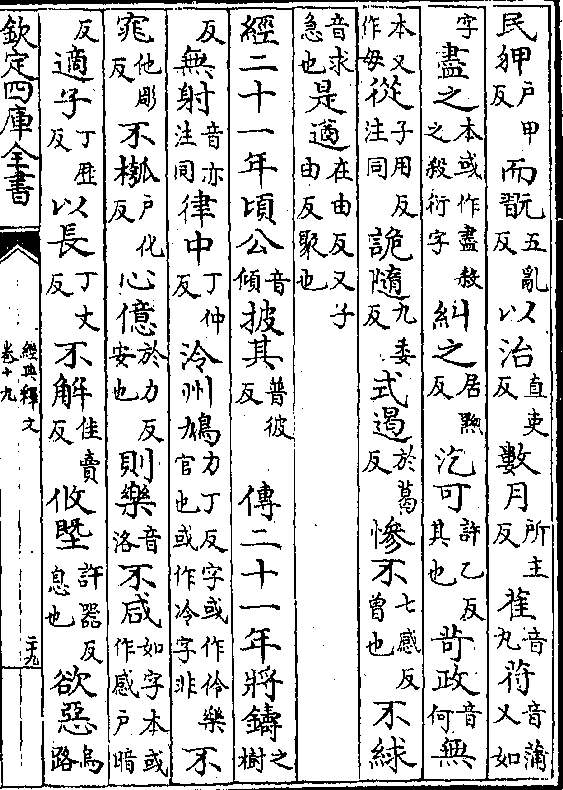 民狎户甲反而翫五亂反以治直吏反數月所主反萑音丸苻音蒲又如
字盡之本或作盡殺之殺衍字糾之居黝反汔可許乙反其也苛政音何無
本又作毋注同從子用反詭隨九委反式遏於葛反慘不七感反曾也不絿
音求急也是遒在由反又子由反聚也
經二十一年頃公音傾披其普彼反 傳二十一年將鑄之樹
反無射音亦注同律中丁仲反泠州鳩力丁反字或作伶樂官也或作冷字非不
窕他彫反不摦户化反心億於力反安也則樂音洛不咸如字本或作感户暗
反適子丁歴反以長丁丈反不解佳賣反攸墍許器反息也欲惡烏路
欽定四庫全書
經典釋文
卷十九
二十九